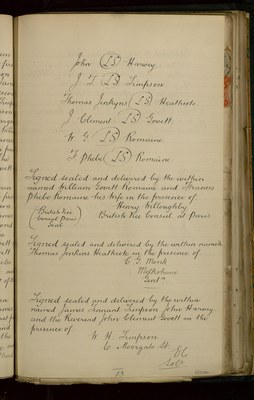 John (LS) Harvey
J T (LS) Simpson
Thomas Jenkyns (LS) Heathcote.
J Clement (LS) Govett.
W G (LS) Romaine
F Phebe (LS) Romaine
Signed sealed and delivered by the within
named William Govett Romaine and Frances
Phebe Romaine his wife in the presence of
Henry Willoughby
(British Vice Consul Paris Seal) British Vice Consul at Paris
Signed sealed and delivered by the within named
Thomas Jenkins Heathcote in the presence of
C. J. Monk
Signed sealed and delivered by the within
named James Tennant Simpson John Harvey
and the Reverend John Clement Govett in the
presence of
W. H. Simpson
6 Moorgate St. EC
Solr